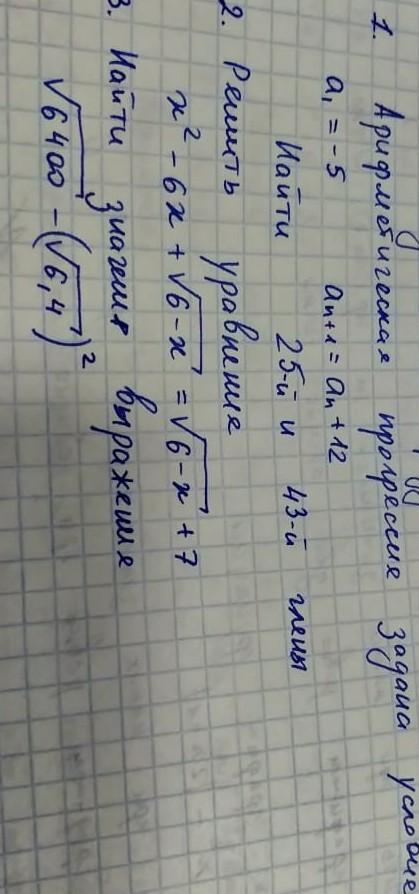 1. Арифметическая прогрессия задана
a₁ = -5 aₙ₊₁ = aₙ + 12
Найти 25-й и 43-й члены
2. Решить уравнение
x² - 6x + √6-x = √6-x + 7
3. Найти значения выражения
√6400 - (√6,4)²